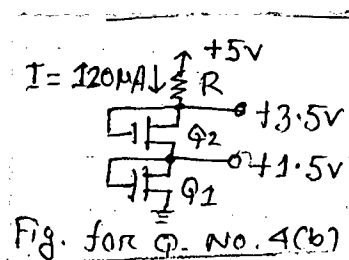 +5V
I = 120μA↓ R
+3.5V
Q2
+1.5V
Q1
Fig. for Q. No. 4(b)